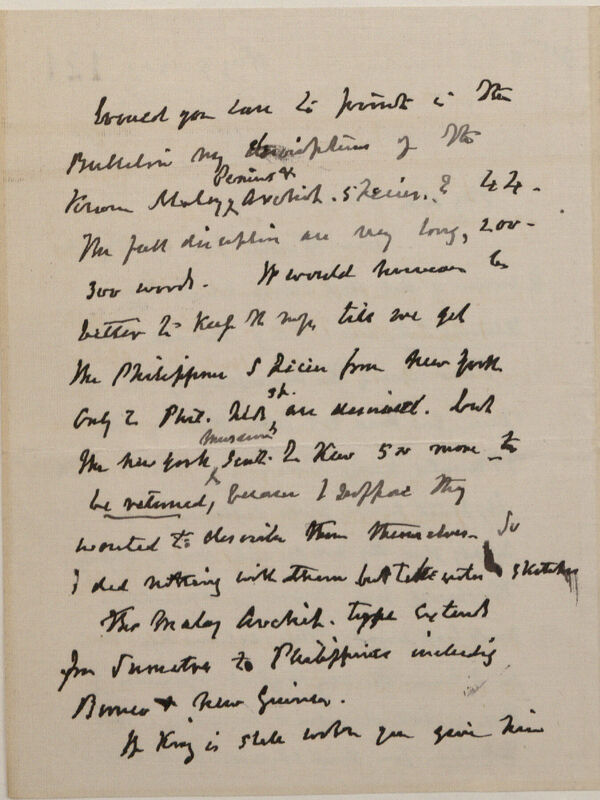 Would you care to print in the
Bulletin my descriptions of the
known Malay Archip. Species. ? 44.
Peninsr &
The full description are very long, 200-
300 words. It would however be
better to keep the mss, till we get
the Philippine Species from New York
Only 2 Phil. are described. but
the New York Museum sent to Kew 50 more to
be returned, because I suppose they
wanted to describe them themselves. So
I did nothing with them but take notes & sketches
The Malay Archip. type extends
from Sumatra to Philippines including
Borneo & New Guinea.
If King is still when you give him